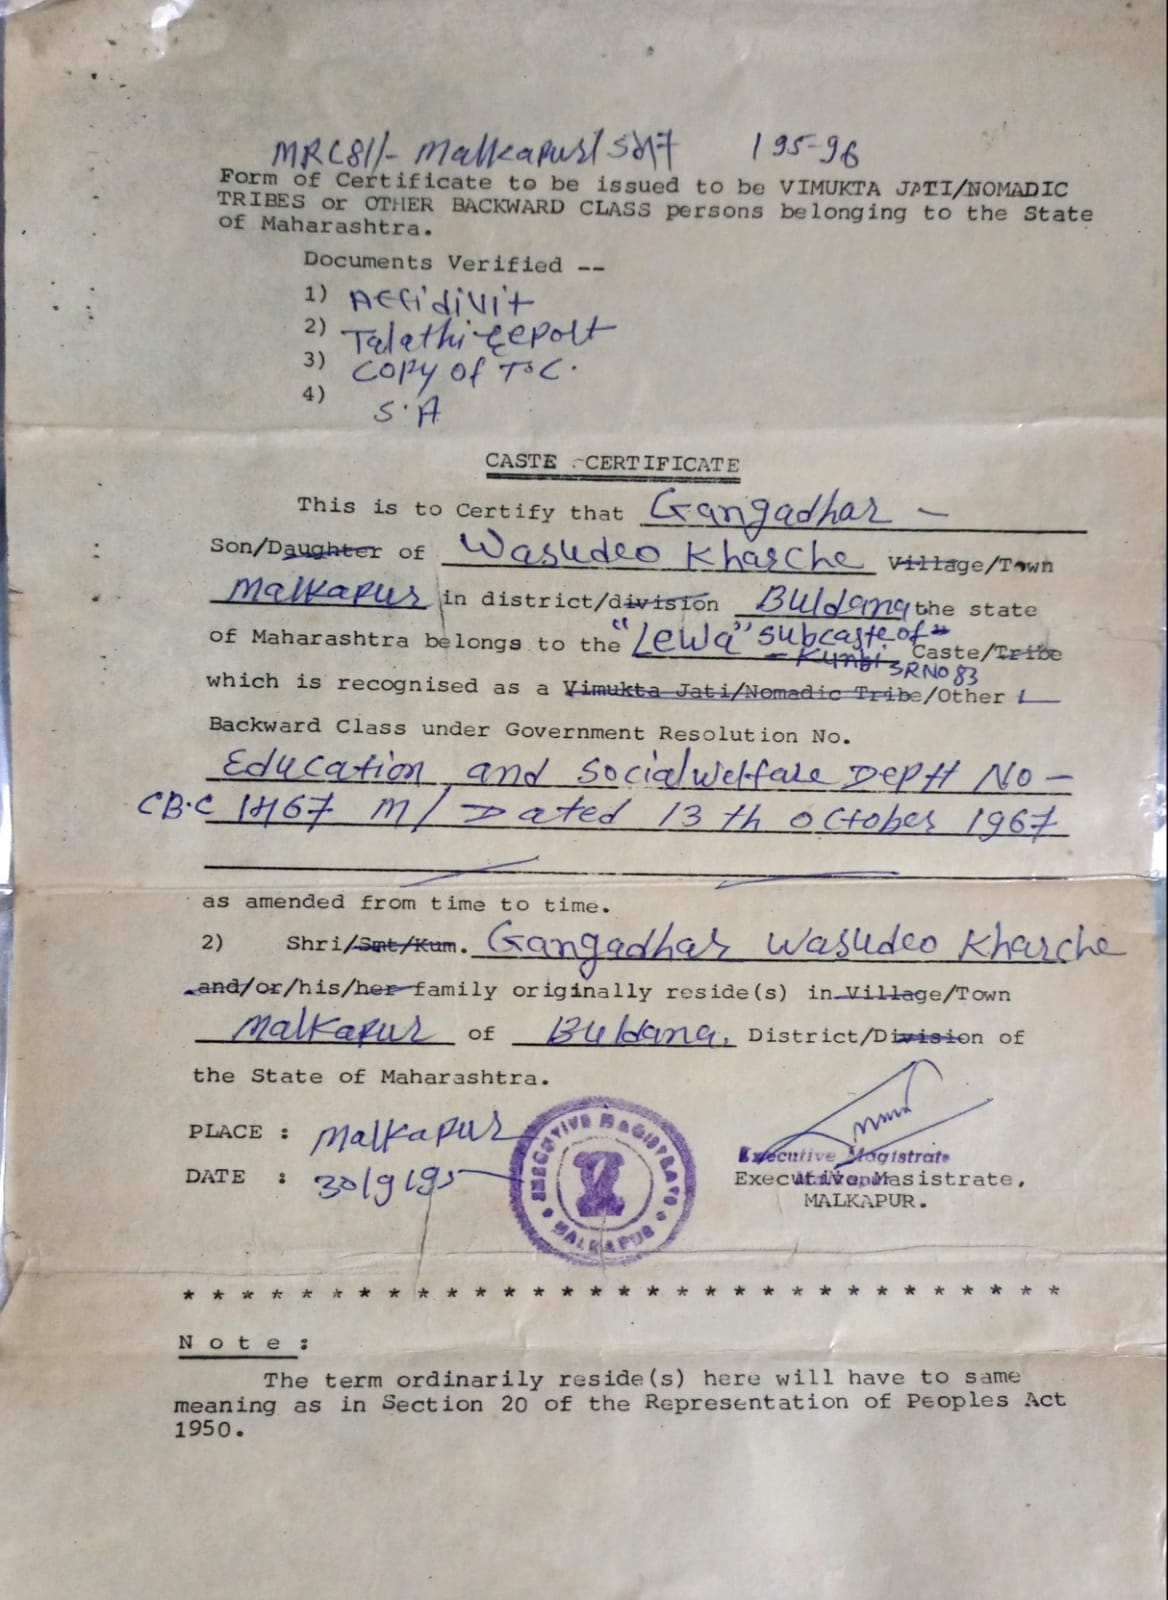 MRC81/- Malkapur/ 195-96
Form of Certificate to be issued to be VIMUKTA JATI/NOMADIC
TRIBES or OTHER BACKWARD CLASS persons belonging to the State
of Maharashtra.
Documents Verified --
1) Affidivit
2) Talathi Report
3) Copy of T.C.
4) S.A
CASTE -CERTIFICATE
This is to Certify that Gangadhar -
Son/Daughter of Wasudeo Kharche Village/Town
Malkapur in district/division Buldana the state
of Maharashtra belongs to the "Lewa" subcaste of"
- Kunbi. Caste/Tribe
SR NO 83
which is recognised as a Vimukta Jati/Nomadic Tribe/Other
Backward Class under Government Resolution No.
Education and Social welfare Deptt No -
CB.C 1467 M/ Dated 13 th October 1967
as amended from time to time.
2) Shri/Smt/Kum. Gangadhar Wasudeo Kharche
and/or/his/her family originally reside(s) in Village/Town
Malkapur of Buldana. District/Division of
the State of Maharashtra.
PLACE : Malkapur
DATE : 30/9/95
EXECUTIVE MAGISTRATE
MALKAPUR
Executive Magistrate
Malkapur
Executive Masistrate,
MALKAPUR.
* * * * * * * * * * * * * * * * * * * * * * * * * * * * * * *
N o t e :
The term ordinarily reside(s) here will have to same
meaning as in Section 20 of the Representation of Peoples Act
1950.